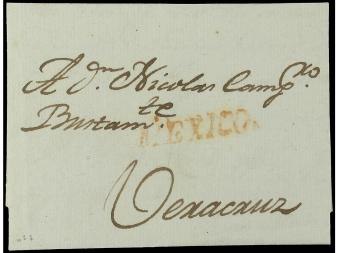 A dn. Nicolas Campo.
Bustamte.
MEXICO.
Veracruz